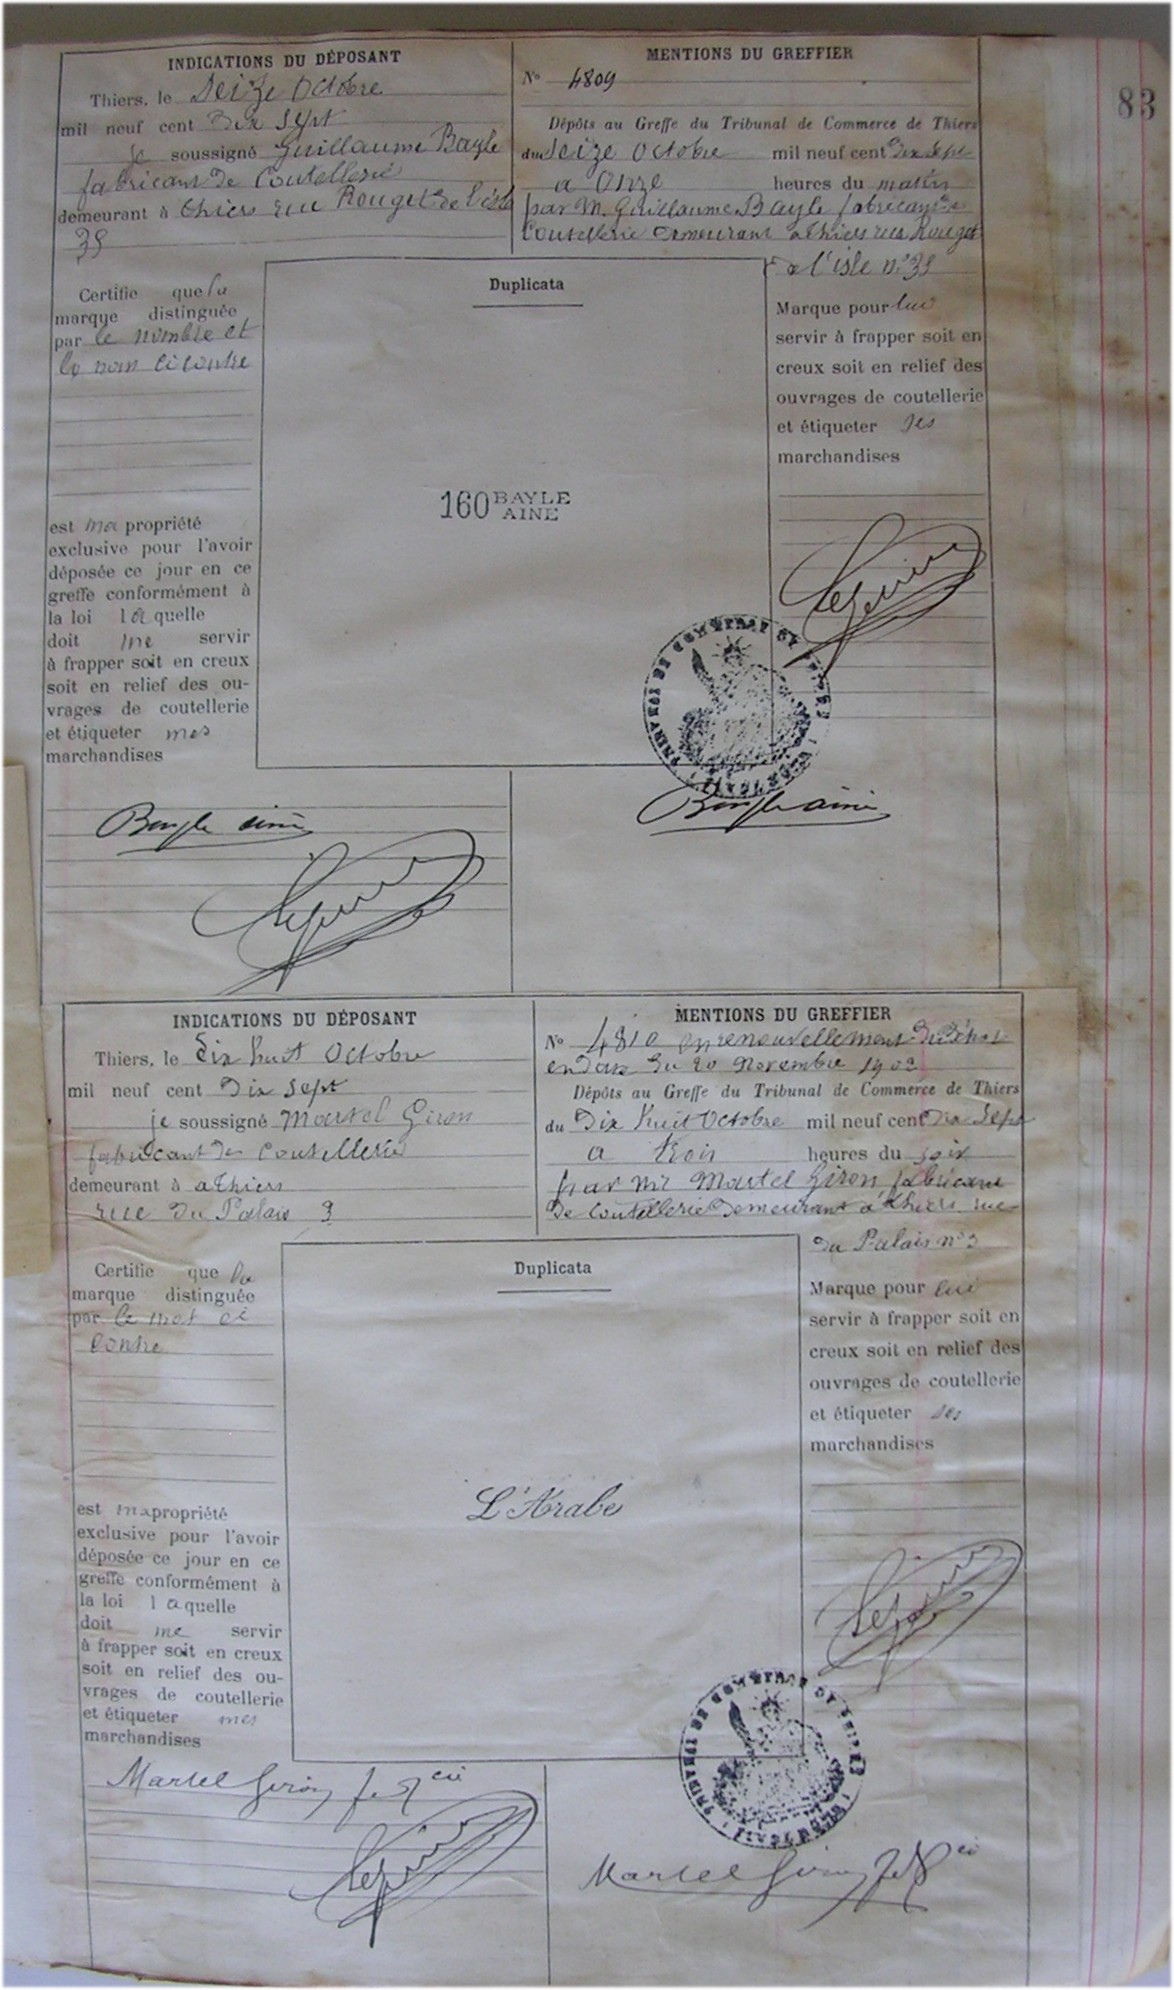 83
INDICATIONS DU DÉPOSANT
Thiers, le Seize Octobre
mil neuf cent Dix Sept
je soussigné Guillaume Bayle
fabricant de Coutellerie
demeurant à Thiers rue Rouget de l'isle
39
MENTIONS DU GREFFIER
No 4809
Dépôts au Greffe du Tribunal de Commerce de Thiers
du Seize Octobre mil neuf cent Dix Sept
a Onze heures du matin
par M. Guillaume Bayle fabricant de
Coutellerie demeurant a Thiers rue Rouget
de l'isle n° 39
Certifie que la
marque distinguée
par le nombre et
le nom ci contre
est ma propriété
exclusive pour l'avoir
déposée ce jour en ce
greffe conformément à
la loi laquelle
doit me servir
à frapper soit en creux
soit en relief des ou-
vrages de coutellerie
et étiqueter mes
marchandises
Duplicata
160 BAYLE
AINE
Marque pour lui
servir à frapper soit en
creux soit en relief des
ouvrages de coutellerie
et étiqueter ses
marchandises
TRIBUNAL DE COMMERCE DE THIERS
Bayle ainé
Bayle ainé
INDICATIONS DU DÉPOSANT
Thiers, le Dix huit Octobre
mil neuf cent Dix Sept
je soussigné Martel Giron
fabricant de Coutellerie
demeurant à a Thiers
rue du Palais 3
MENTIONS DU GREFFIER
No 4810 en renouvellement du Dépot
en Date du 20 Novembre 1902
Dépôts au Greffe du Tribunal de Commerce de Thiers
du Dix huit Octobre mil neuf cent Dix Sept
a trois heures du soir
par Mr Martel Giron fabricant
de Coutellerie Demeurant a Thiers rue
du Palais n° 3
Certifie que la
marque distinguée
par le mot ci
contre
est ma propriété
exclusive pour l'avoir
déposée ce jour en ce
greffe conformément à
la loi laquelle
doit me servir
à frapper soit en creux
soit en relief des ou-
vrages de coutellerie
et étiqueter mes
marchandises
Duplicata
L'Arabe
Marque pour lui
servir à frapper soit en
creux soit en relief des
ouvrages de coutellerie
et étiqueter ses
marchandises
TRIBUNAL DE COMMERCE DE THIERS
Martel Giron
Martel Giron